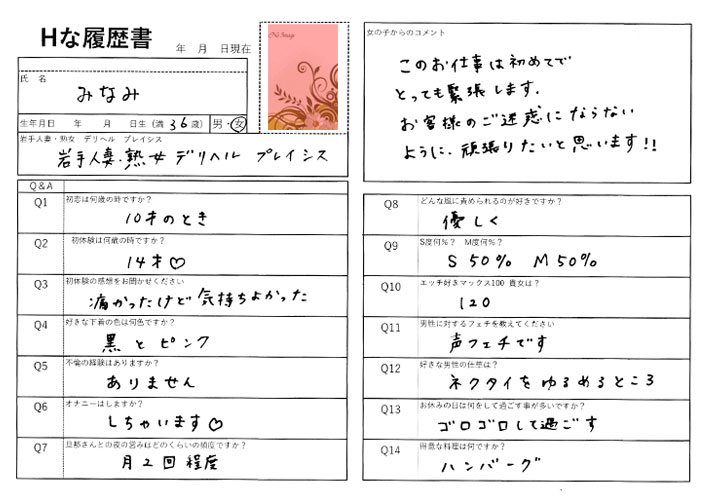 Hな履歴書
年 月 日現在
氏 名
みなみ
生年月日 年 月 日生 (満 36 歳) 男・女
岩手人妻・熟女 デリヘル プレイシス
岩手人妻・熟女 デリヘル プレイシス
No Image
女の子からのコメント
このお仕事は初めてで
とっても緊張します.
お客様のご迷惑にならない
ように、頑張りたいと思います!!
Q&A
Q1 初恋は何歳の時ですか?
10才のとき
Q4 好きな下着の色は何色ですか?
黒とピンク
Q5 不倫の経験はありますか?
ありません
Q6 オナニーはしますか?
しちゃいます♡
Q7 旦那さんとの夜の営みはどのくらいの頻度ですか?
月2回程度
Q8 どんな風に責められるのが好きですか?
優しく
Q9 S度何%? M度何%?
S 50% M 50%
Q10 エッチ好きマックス100 貴女は?
120
Q11 男性に対するフェチを教えてください
声フェチです
Q12 好きな男性の仕草は?
ネクタイをゆるめるところ
Q13 お休みの日は何をして過ごす事が多いですか?
ゴロゴロして過ごす
Q14 得意な料理は何ですか?
ハンバーグ